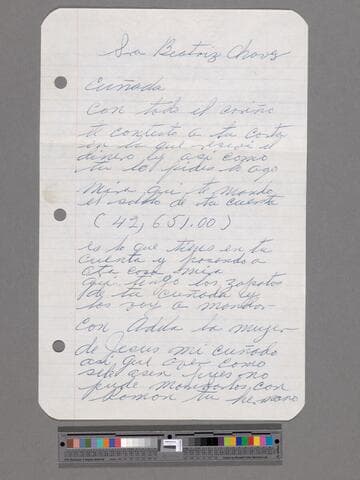 Sra Beatriz Chavez
Cuñada
Con todo el cariño
te contesto a tu carta
en la que recivi el
dinero y asi como
tu lo pides lo ago
Mira aqui te mando
el saldo de tu cuenta
(42,651.00)
es lo que tienes en tu
cuenta y pasando a
ota cosa mira
aqui tengo los zapatos
de tu cuñada y
los voy a mandar
con Adda la mujer
de Jesus mi cuñado
asi que ver como
le asen pues no
pude mandarlos con
Ramon tu hermano